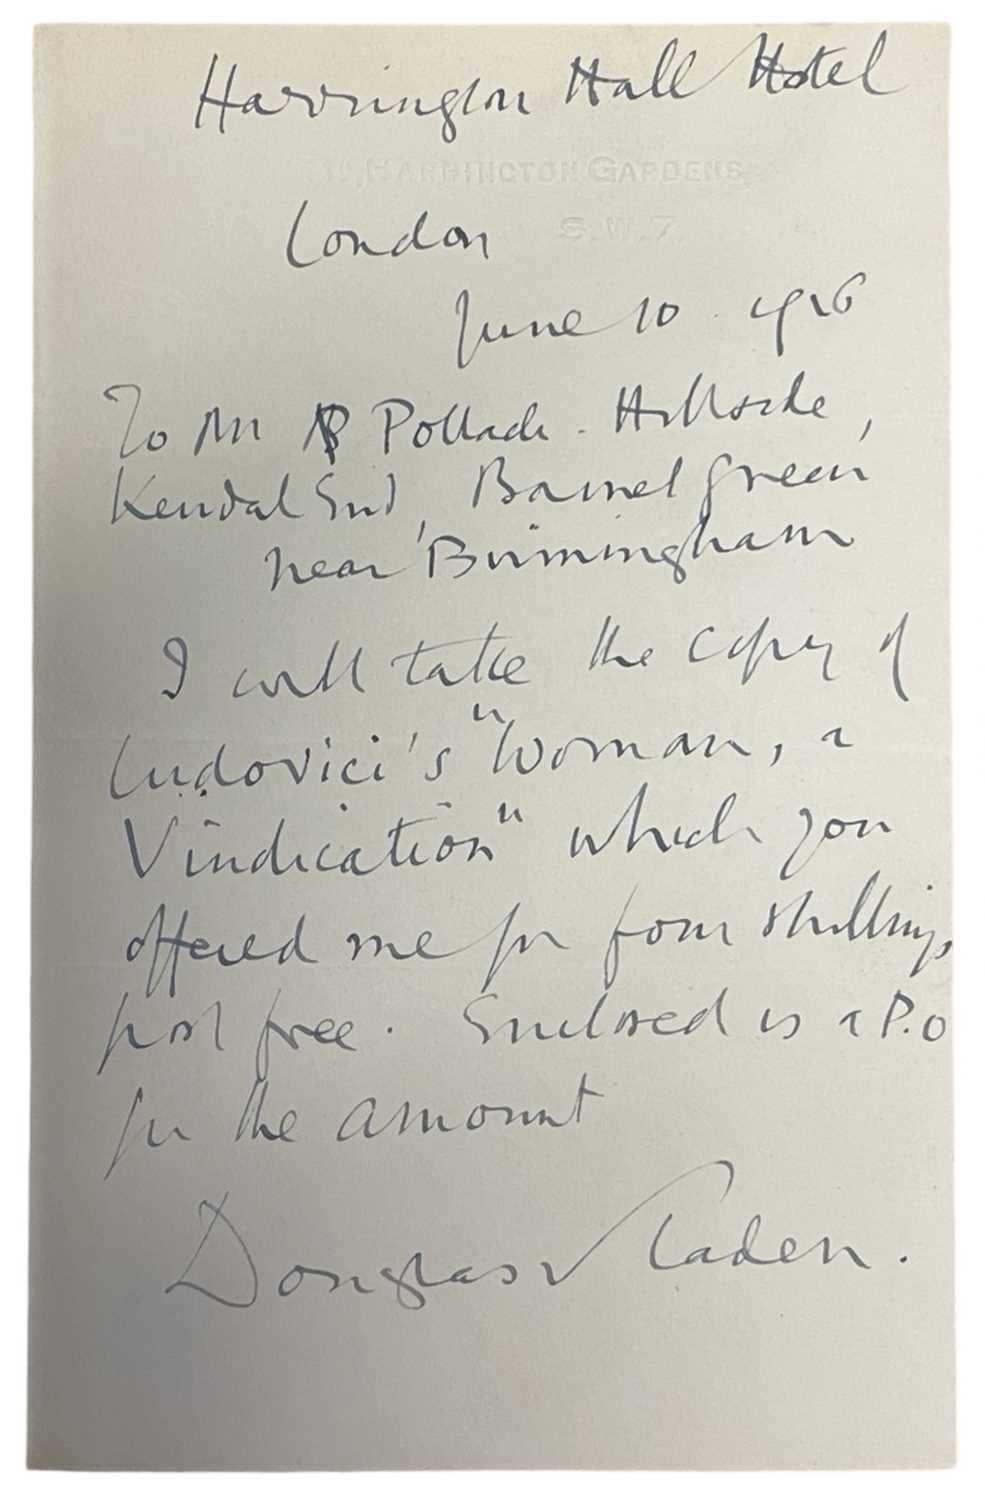 Harrington Hall Hotel
HARRINGTON GARDENS,
London
S.W.7
June 10. 1926
To Mr P Pollack. Hillside,
Kendal End, Barnet Green
near Birmingham
I will take the copy of
Ludovici's "Woman, a
Vindication" which you
offered me for four shillings
post free. Enclosed is a P.O
for the amount
Douglas Sladen.